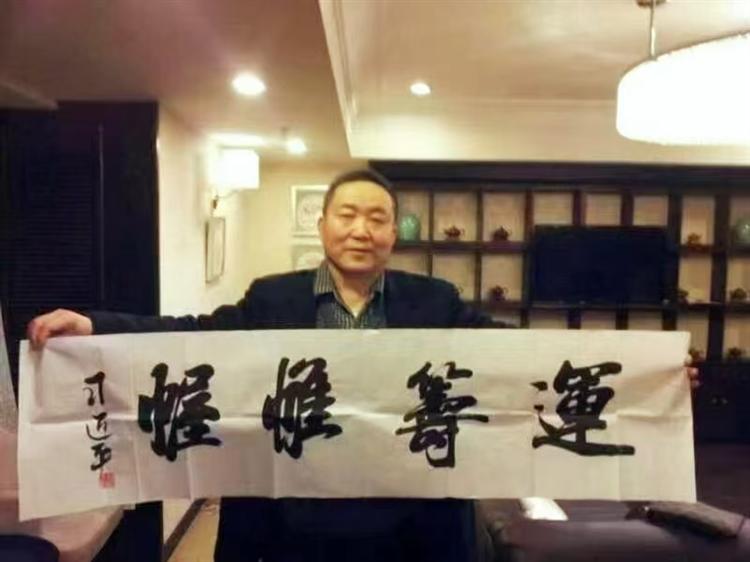 運籌帷幄
习近平